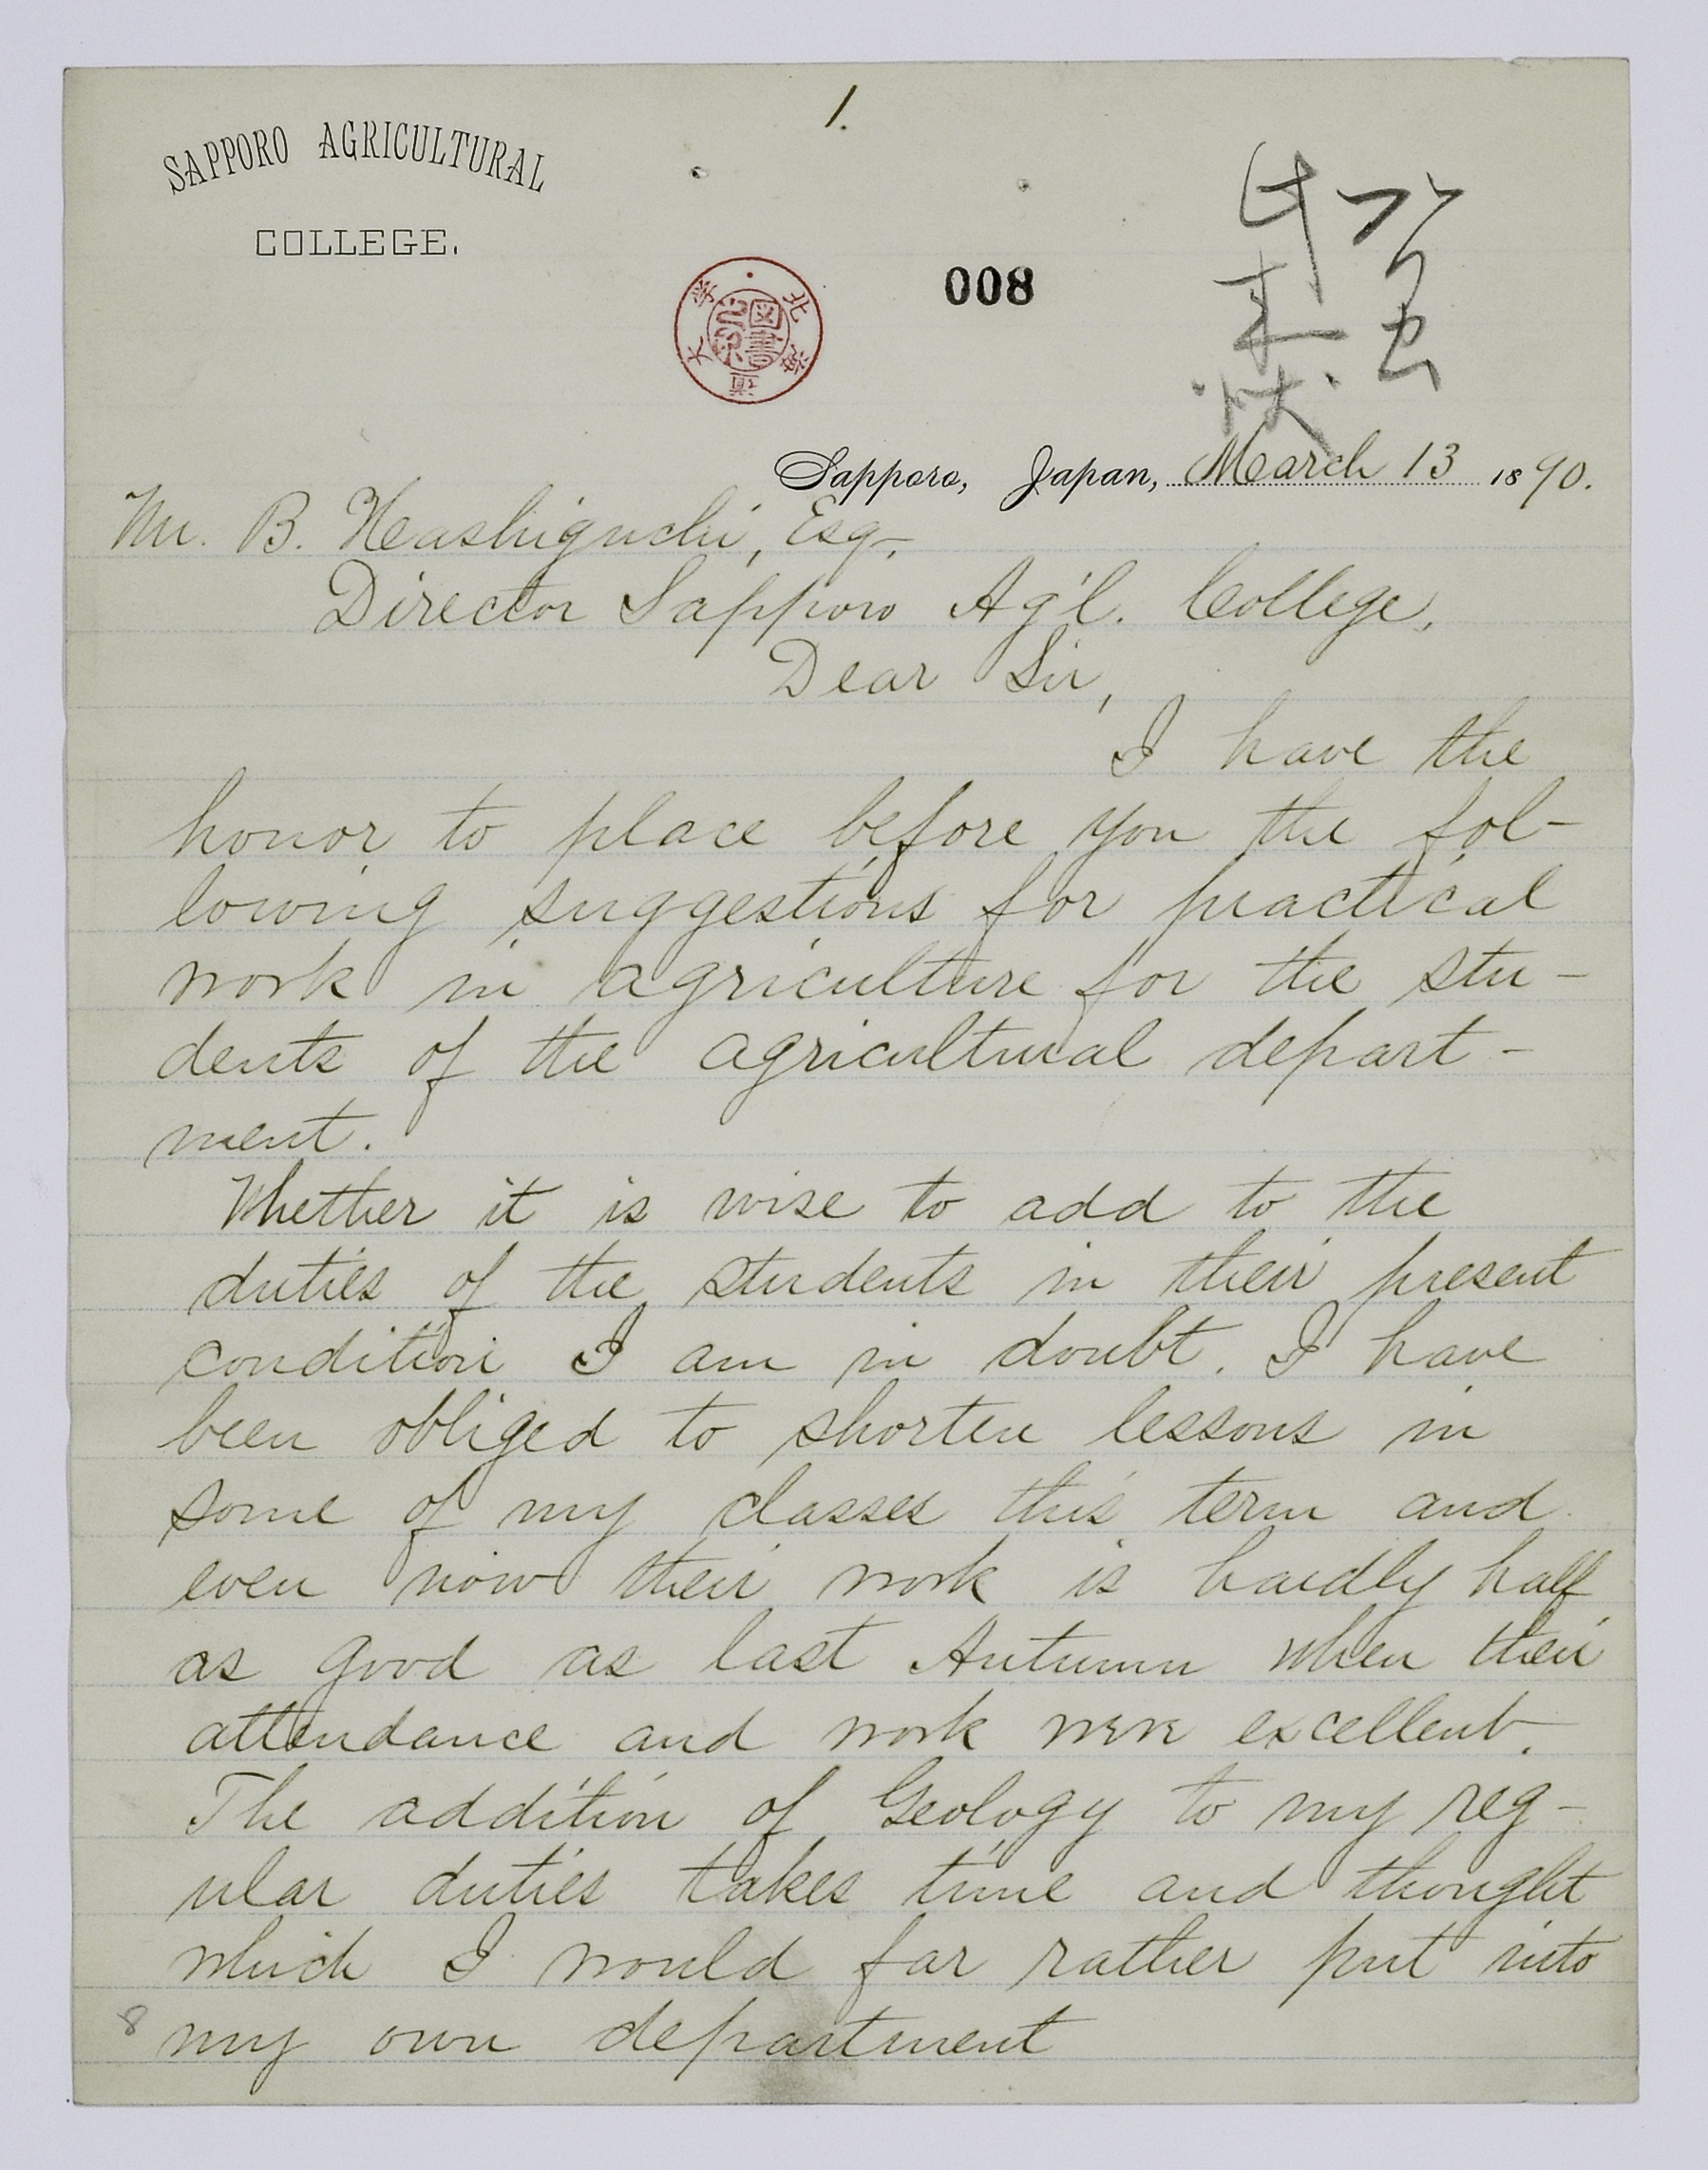 1.
SAPPORO AGRICULTURAL
COLLEGE.
008
北海道大学
図書之印
Sapporo, Japan, March 13 1890.
Mr. B. Heashiguchi, Esq.,
Director Sapporo Ag'l. College.
Dear Sir,
I have the
honor to place before you the fol-
lowing suggestions for practical
work in agriculture for the stu-
dents of the agricultural depart-
ment.
Whether it is wise to add to the
duties of the students in their present
condition I am in doubt. I have
been obliged to shorten lessons in
some of my classes this term and
even now their work is hardly half
as good as last Autumn when their
attendance and work were excellent.
The addition of Geology to my reg-
ular duties takes time and thought
which I would far rather put into
8
my own department